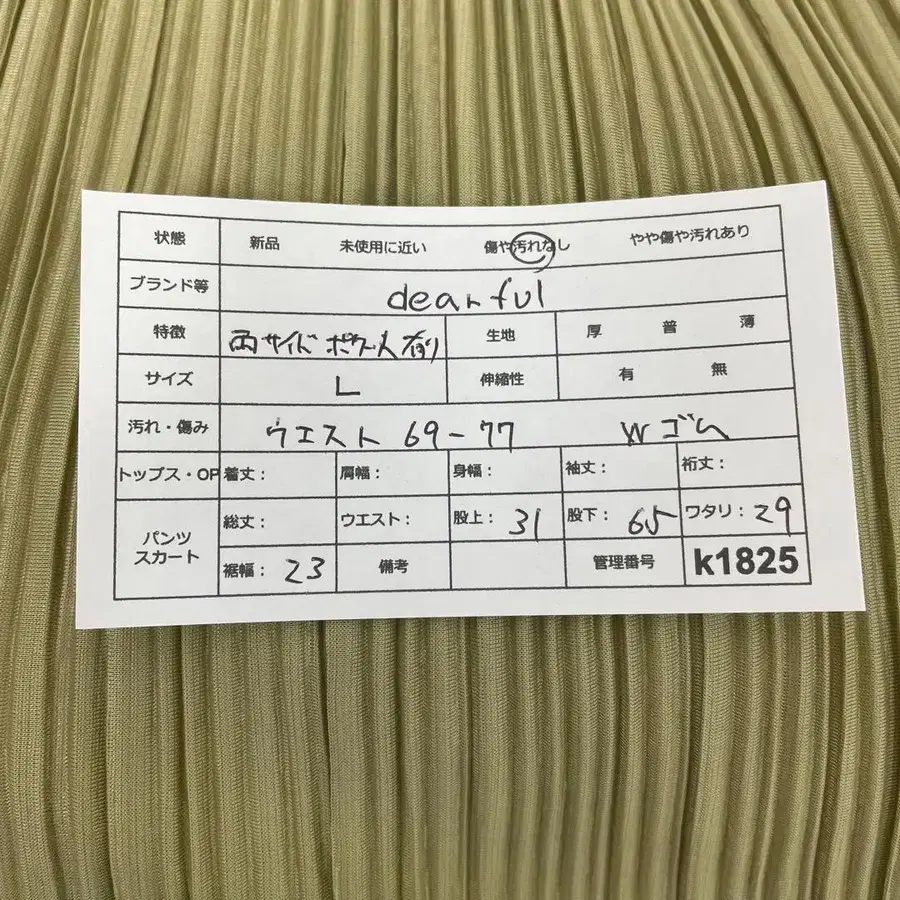 状態 新品 未使用に近い 傷や汚れなし やや傷や汚れあり
ブランド等 dearful
特徴 両サイドポケット有り 生地 厚 普 薄
サイズ L 伸縮性 有 無
汚れ・傷み ウエスト 69-77 Wゴム
トップス・OP 着丈: 肩幅: 身幅: 袖丈: 裄丈:
パンツ スカート 総丈: ウエスト: 股上: 31 股下: 65 ワタリ: 29
裾幅: 23 備考 管理番号 k1825